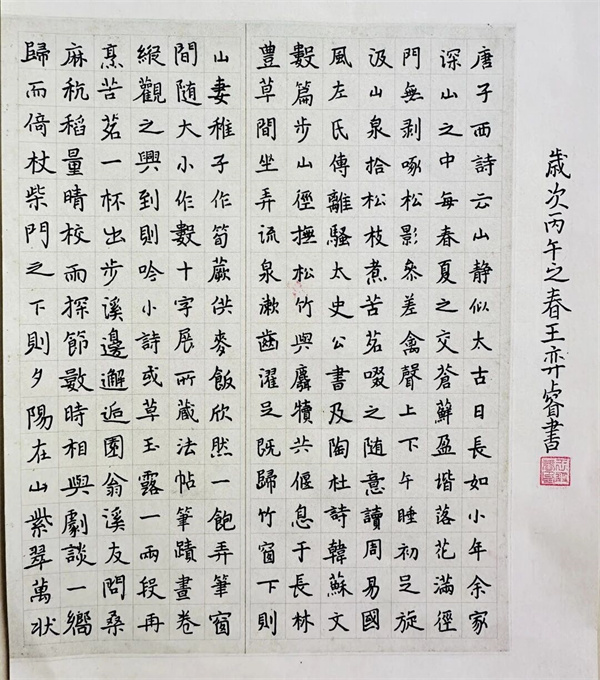 歲次丙午之春王弈睿書
唐子西詩云山静似太古日長如小年余家
深山之中每春夏之交蒼蘚盈堦落花滿徑
門無剥啄松影叅差禽聲上下午睡初足旋
汲山泉拾松枝煮苦茗啜之随意讀周易國
風左氏傳離騷太史公書及陶杜詩韓蘇文
數篇步山徑撫松竹與麛犢共偃息于長林
豊草間坐弄流泉漱齒濯足既歸竹窗下則
山妻稚子作筍蕨供麥飯欣然一飽弄筆窗
間随大小作數十字展所藏法帖筆蹟畫卷
縱觀之興到則吟小詩或草玉露一兩段再
烹苦茗一杯出步溪邊邂逅園翁溪友問桑
麻秔稻量晴校雨探節數時相與劇談一嚮
歸而倚杖柴門之下則夕陽在山紫翠萬狀